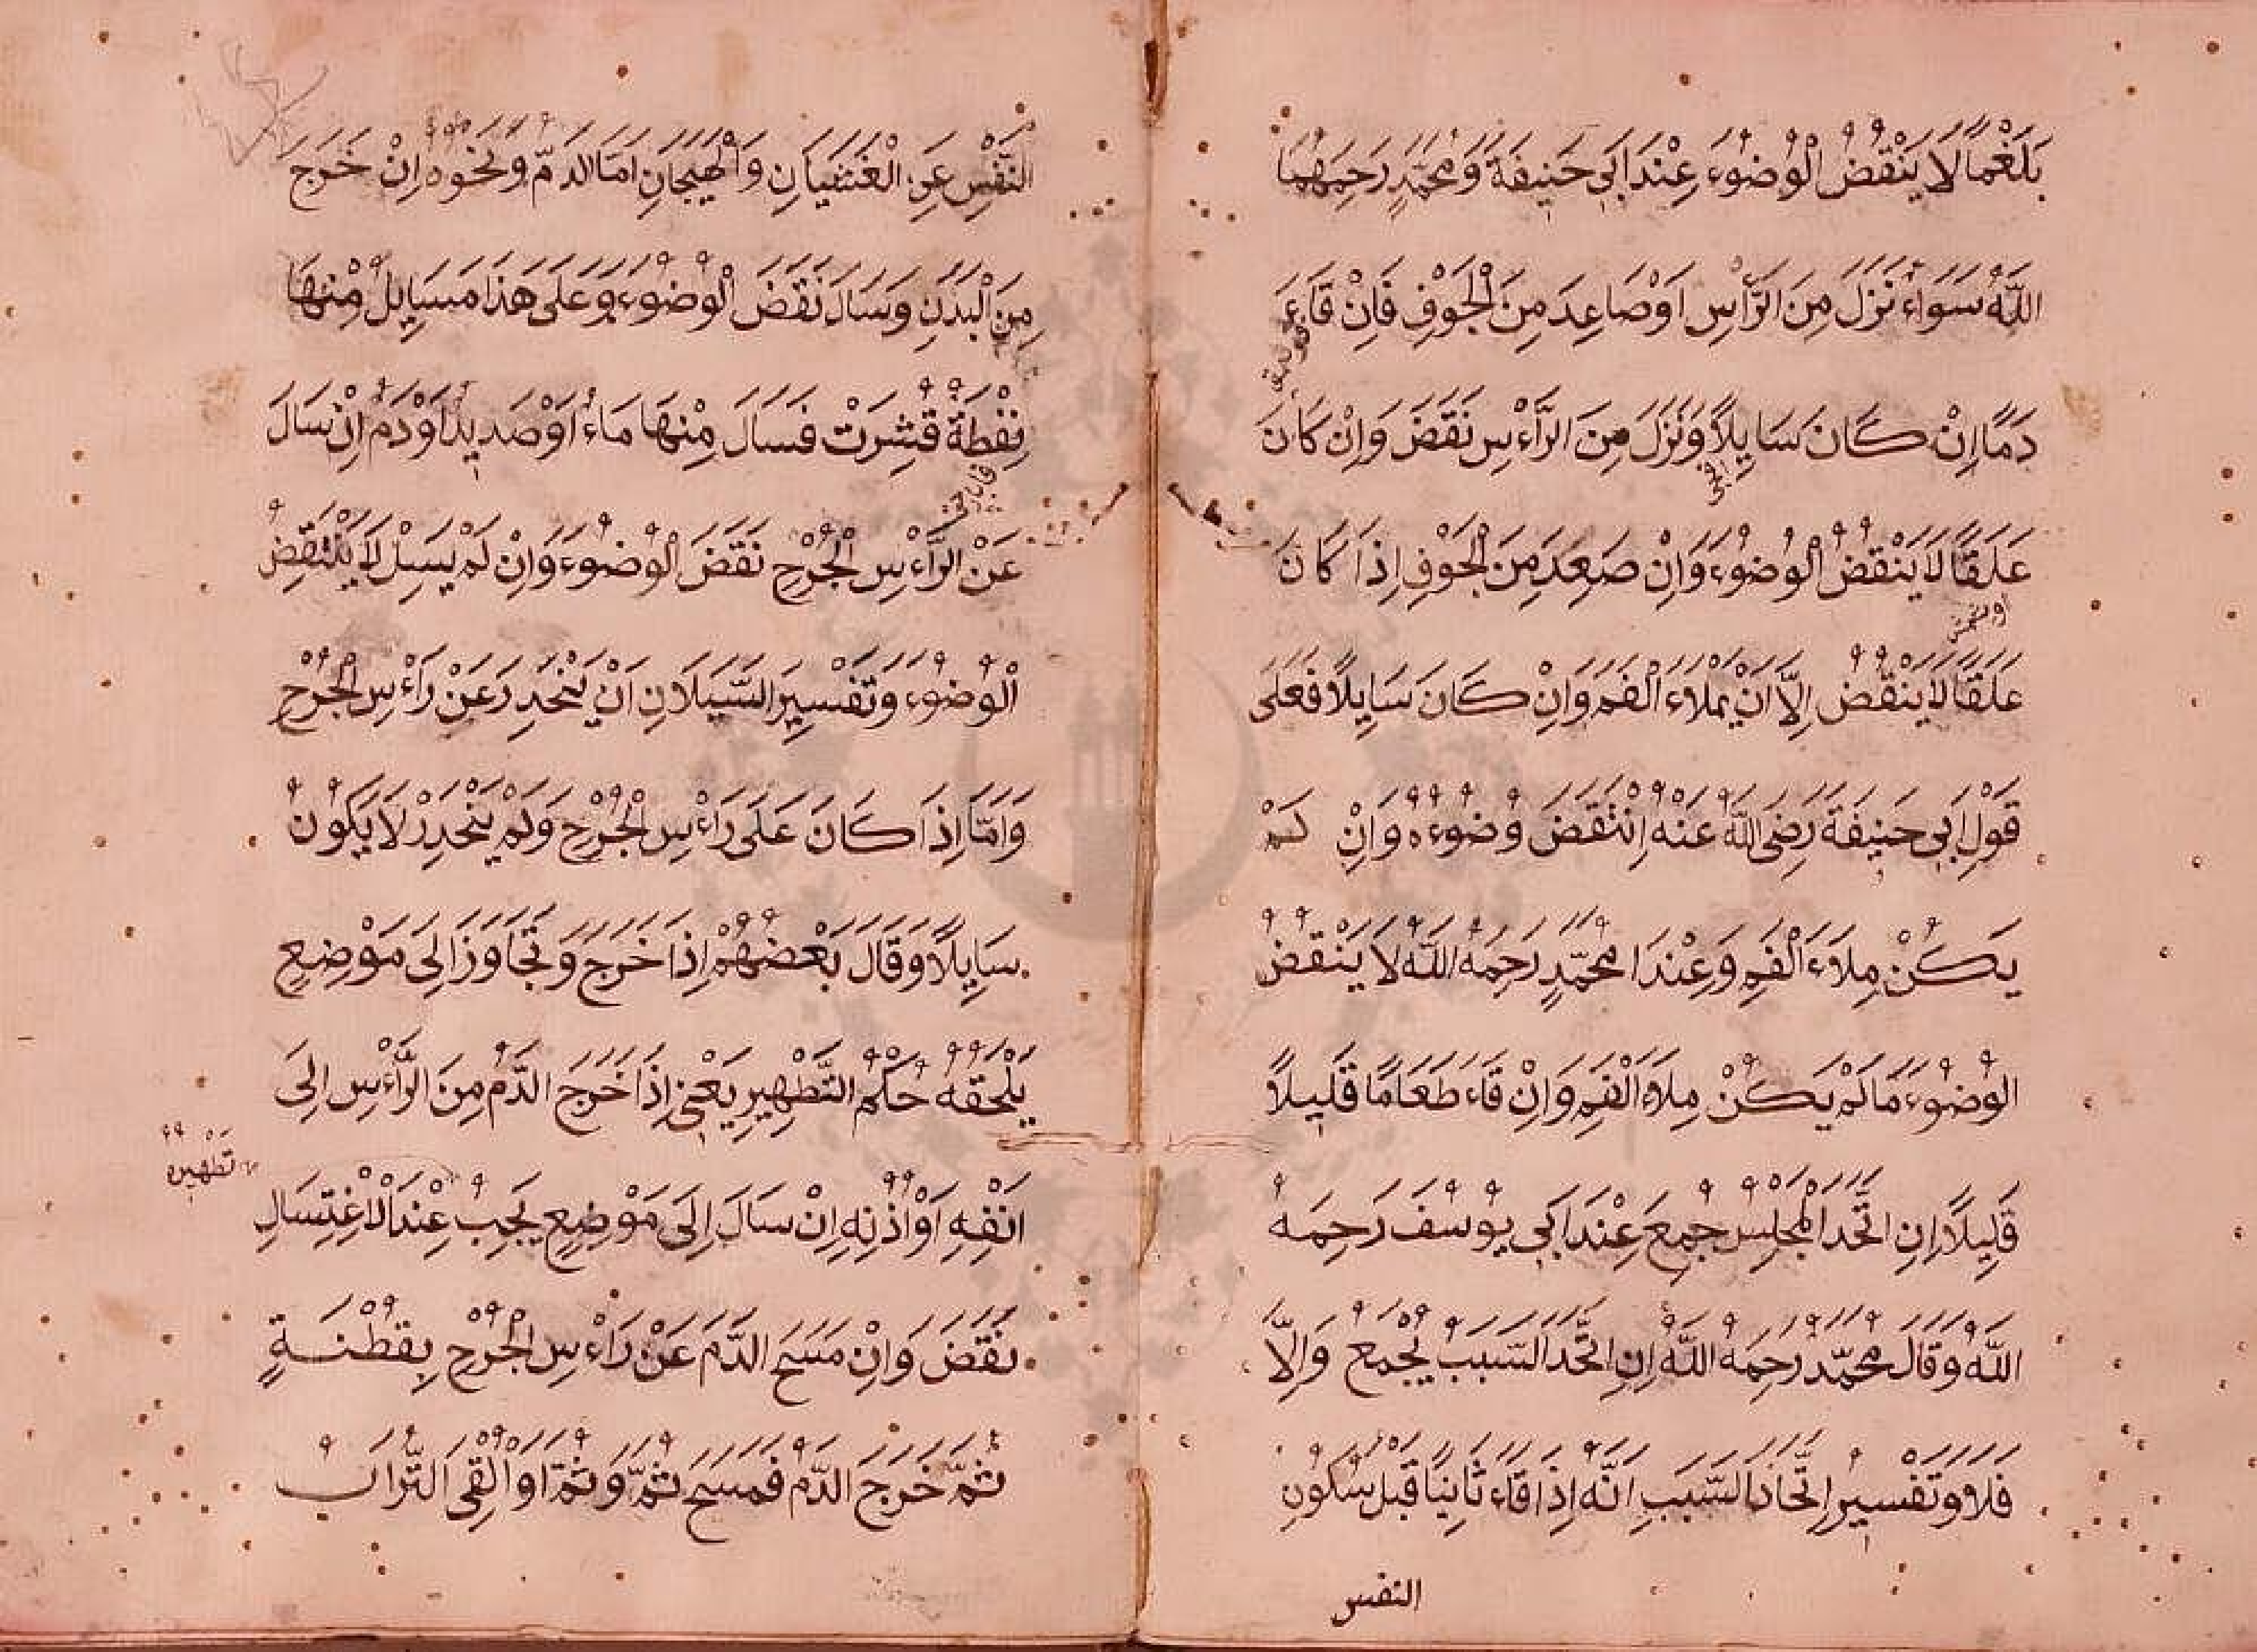 بَلْغَمًا لَا يَنْقُضُ الْوُضُوءَ عِنْدَ اَبِي حَنِيفَةَ وَمُحَمَّدٍ رَحِمَهُمَا
اللّٰهُ سَوَاءٌ نَزَلَ مِنَ الرَّأْسِ اَوْ صَاعِدَ مِنَ الْجَوْفِ فَاِنْ قَاءَ
دَمًا اِنْ كَانَ سَايِلًا وَنَزَلَ مِنَ الرَّاءْسِ نَقَضَ وَاِنْ كَانَ
عَلَقًا لَا يَنْقُضُ الْوُضُوءَ وَاِنْ صَعِدَ مِنَ الْجَوْفِ اِذَا كَانَ
عَلَقًا لَا يَنْقُضُ اِلَّا اَنْ يَمْلَاءَ الْفَمَ وَاِنْ كَانَ سَايِلًا فَعَلَى
قَوْلِ اَبِي حَنِيفَةَ رَضِيَ اللّٰهُ عَنْهُ اِنْتَقَضَ وُضُوءُهُ وَاِنْ لَمْ
يَكُنْ مِلَاءَ الْفَمِ وَعِنْدَا مُحَمَّدٍ رَحِمَهُ اللّٰهُ لَا يَنْقُضُ
الْوُضُوءَ مَا لَمْ يَكُنْ مِلَاءَ الْفَمِ وَاِنْ قَاءَ طَعَامًا قَلِيلًا
قَلِيلًا اِنِ اتَّحَدَ الْمَجْلِسُ جُمِعَ عِنْدَ اَبِي يُوسُفَ رَحِمَهُ
اللّٰهُ وَقَالَ مُحَمَّدٌ رَحِمَهُ اللّٰهُ اِنِ اتَّحَدَ السَّبَبُ يُجْمَعُ وَاِلَّا
فَلَا وَتَفْسِيرُ اِتِّحَادِ السَّبَبِ اَنَّهُ اِذَا قَاءَ ثَانِيًا قَبْلَ سُكُونِ
النفس
النَّفْسِ عَنِ الْغَثَيَانِ وَالْهَيَجَانِ اَمَّا الدَّمُ وَنَحْوُهُ اِنْ خَرَجَ
مِنَ الْبَدَنِ وَسَالَ نَقَضَ الْوُضُوءَ وَعَلَى هَذَا مَسَايِلُ مِنْهَا
نِفْطَةٌ قُشِرَتْ فَسَالَ مِنْهَا مَاءٌ اَوْ صَدِيدٌ اَوْ دَمٌ اِنْ سَالَ
عَنْ الرَّاءْسِ الْجُرْحِ نَقَضَ الْوُضُوءَ وَاِنْ لَمْ يَسِيلْ لَا يَنْتَقِضُ
الْوُضُوءُ وَتَفْسِيرُ السَّيَلَانِ اَنْ يَنْحَدِرَ عَنْ رَاءْسِ الْجُرْحِ
وَاَمَّا اِذَا كَانَ عَلَى رَاءْسِ الْجُرْحِ وَلَمْ يَنْحَدِرْ لَا يَكُونُ
سَايِلًا وَقَالَ بَعْضُهُمْ اِذَا خَرَجَ وَتَجَاوَزَ اِلَى مَوْضِعٍ
يَلْحَقُهُ حُكْمُ التَّطْهِيرِ يَعْنِي اِذَا خَرَجَ الدَّمُ مِنَ الرَّاءْسِ اِلَى
تطهيره
اَنْفِهِ اَوْ اُذُنِهِ اِنْ سَالَ اِلَى مَوْضِعٍ يَجِبُ عِنْدَ الْاِغْتِسَالِ
نَقَضَ وَاِنْ مَسَحَ الدَّمَ عَنْ رَاءْسِ الْجُرْحِ بِقُطْنَةٍ
ثُمَّ خَرَجَ الدَّمُ فَمَسَحَ ثُمَّ وَثُمَّ اَوْ اُلْقِيَ التُّرَابُ